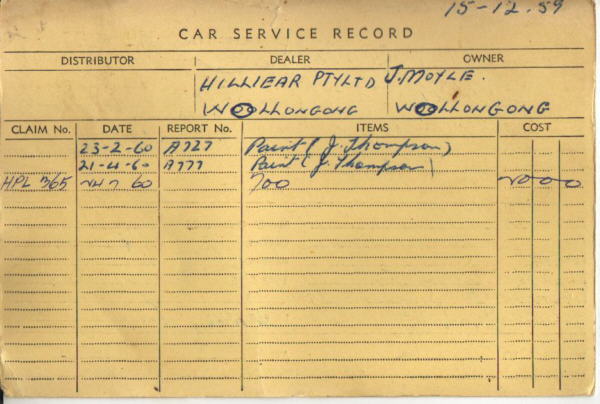 15-12.59
CAR SERVICE RECORD
DISTRIBUTOR DEALER OWNER
HILLIEAR PTY LTD J. MOYLE.
WOOLLONGONG WOOLLONGONG
CLAIM No. DATE REPORT No. ITEMS COST
23-2-60 A727 Paint (J. Thompson)
21-4-60 A777 Paint (J. Thompson)
HPL 365 7 60 700